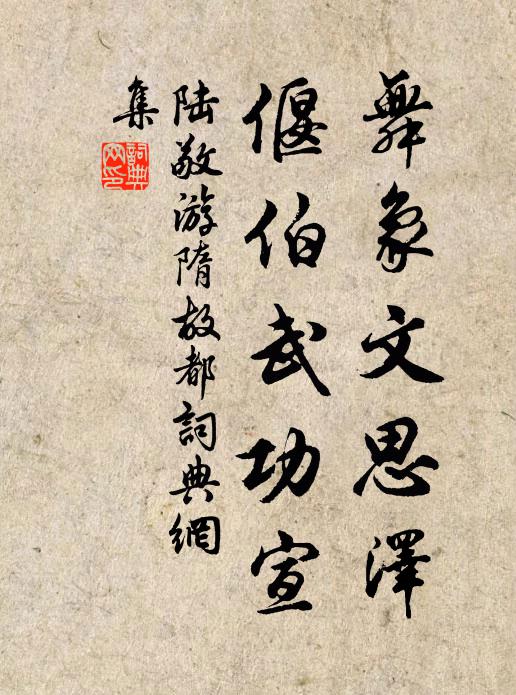 舞象文思澤
偃伯武功宣
陸敬游隋故都詞典網
集
詞典網印